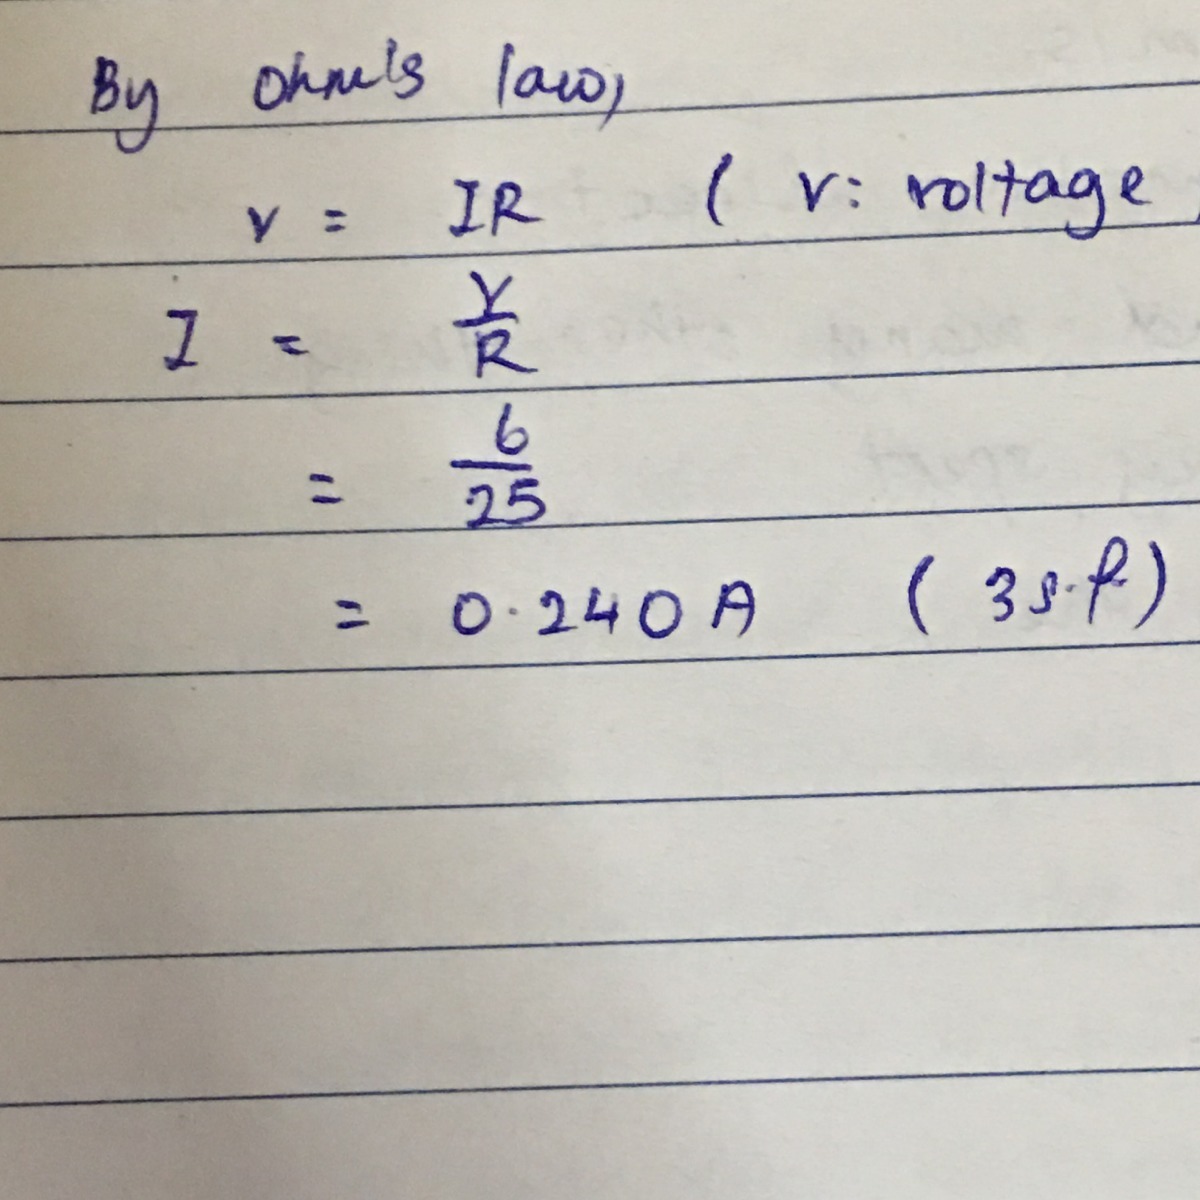 By Ohm's law,
V = IR ( V: voltage,
I = V/R
= 6/25
= 0.240 A ( 3 s.f )